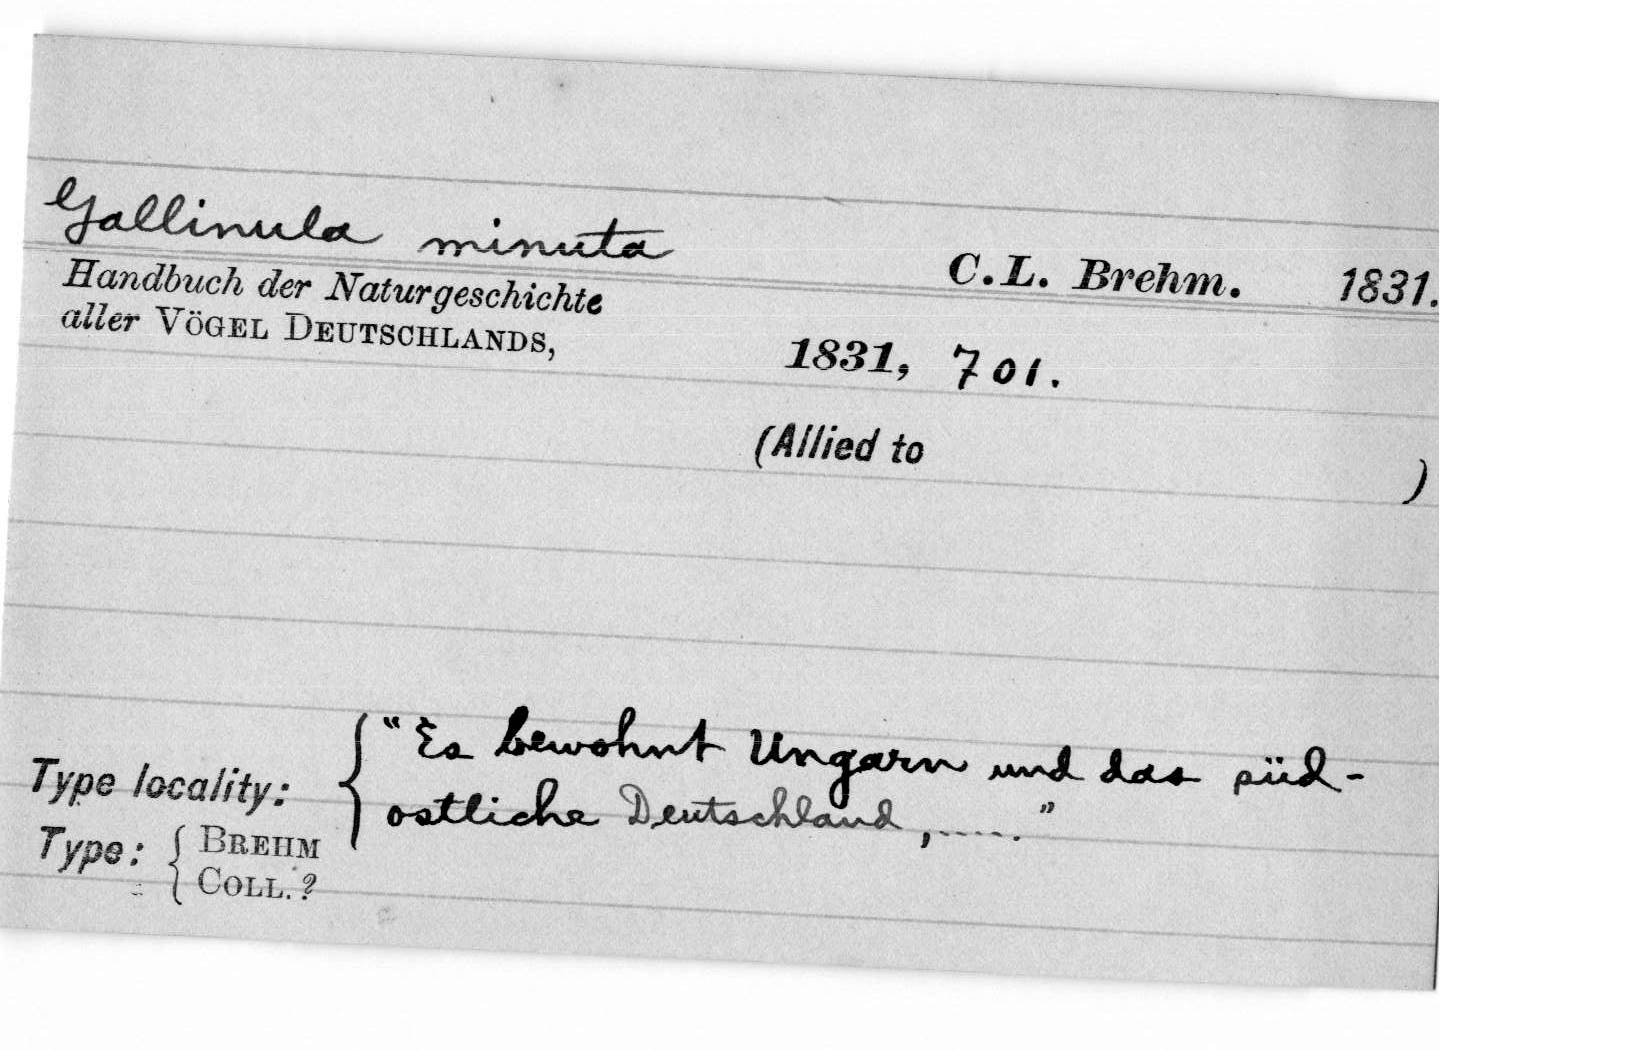 Gallinula minuta C.L. Brehm. 1831.
Handbuch der Naturgeschichte
aller VÖGEL DEUTSCHLANDS, 1831, 701.
(Allied to )
Type locality: { "Es bewohnt Ungarn und das süd-
ostliche Deutschland, ....."
Type: { BREHM
COLL. ?